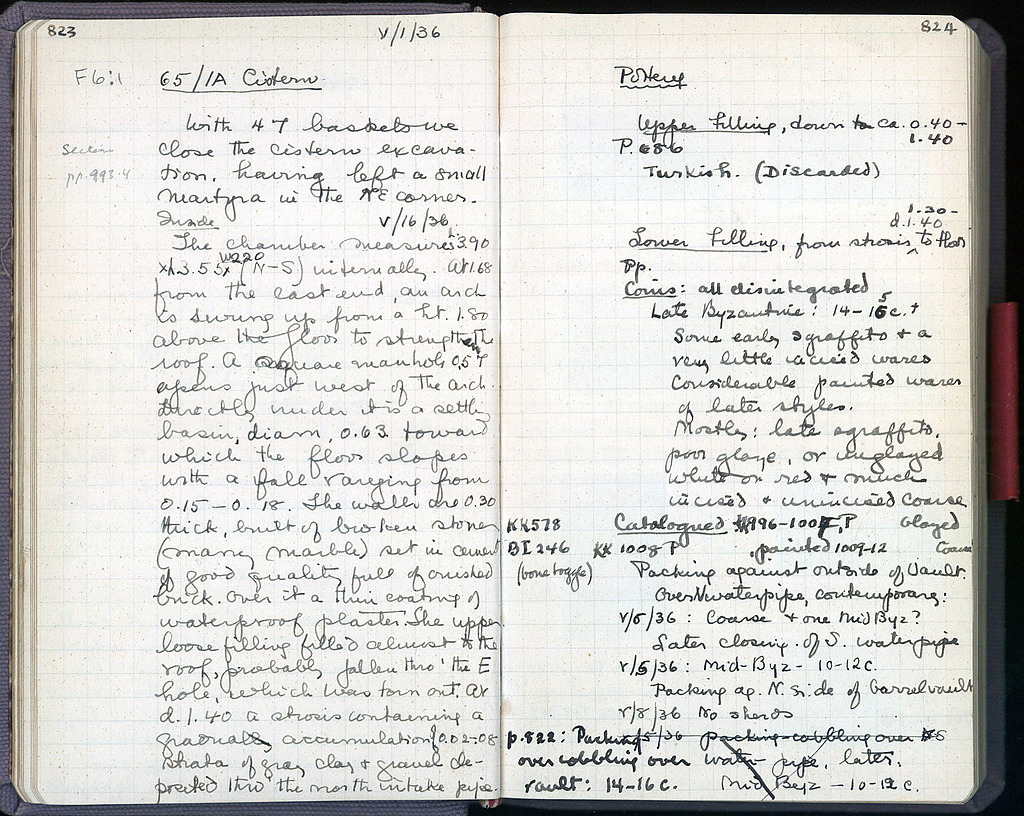 823
V/1/36
F6:1
65/1A Cistern
With 47 baskets we
close the cistern excava-
tion, having left a small
martyra in the NE corner.
Section
pp. 993-4
Inside
V/16/36
The chamber measures 3.90
x 3.55 x W 2.20 (N-S) internally. At 1.68
from the east end, an arch
is swung up from a ht. 1.80
above the floor to strengthen the
roof. A square manhole 0.57
opens just west of the arch.
directly under it is a settling
basin, diam, 0.63 toward
which the floor slopes
with a fall ranging from
0.15 – 0.18. The walls are 0.30
thick, built of broken stones
(many marble) set in cement
of good quality full of crushed
brick. Over it a thin coating of
waterproof plaster. The upper
loose filling filled almost to the
roof, probably fallen thro' the E
hole, which was torn out. At
d. 1.40 a strosis containing a
gradual accumulation of 0.02-08
strata of gray clay & gravel de-
posited thro' the north intake pipe.
824
Pottery
Upper Filling, down to ca. 0.40 –
1.40
P. 686
Turkish. (Discarded)
1.30 –
d. 1.40
Lower Filling, from strosis to floor
pp.
Coins: all disintegrated
Late Byzantine: 14-15 c. +
Some early sgraffito & a
very little incised wares
Considerable painted wares
of later styles.
Mostly: late sgraffito,
poor glaze, or unglazed
white on red & much
incised & unincised coarse
KK578
Catalogued 996-1007, P Glazed
BI 246
KK 1008 P , painted 1009-12 Coarse
(bone toggle)
Packing against outside of Vault.
Over N waterpipe, contemporary:
V/5/36: Coarse & one Mid Byz?
Later closing of S. waterpipe
V/5/36: Mid-Byz - 10-12 c.
Packing ag. N. side of barrel vault
V/8/36 No sherds
p. 822: Packing /5/36 packing cobbling over S
over cobbling over water pipe, later.
vault: 14-16 c. Mid Byz – 10-12 c.